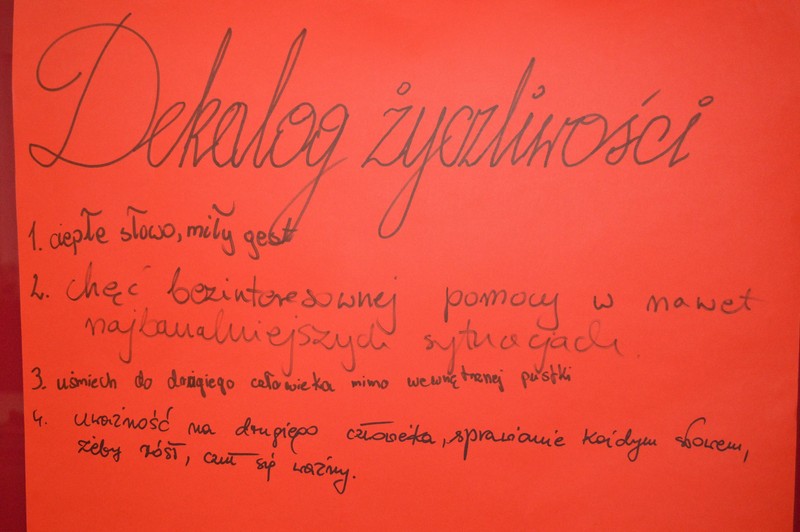 Dekalog życzliwości
1. ciepłe słowo, miły gest
2. chęć bezinteresownej pomocy w nawet
najbanalniejszych sytuacjach.
3. uśmiech do drugiego człowieka mimo wewnętrznej pustki
4. uważność na drugiego człowieka, sprawianie każdym słowem,
żeby rósł, czuł się ważny.